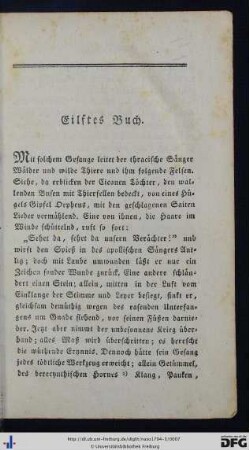 Eilftes Buch.
Mit solchem Gesange leitet der thracische Sänger
Wälder und wilde Thiere und ihm folgende Felsen.
Siehe, da erblicken der Ciconen Töchter, den wal-
lenden Busen mit Thierfellen bedeckt, von eines Hü-
gels Gipfel Orpheus, mit den geschlagenen Saiten
Lieder vermählend. Eine von ihnen, die Haare im
Winde schüttelnd, ruft so fort:
„Sehet da, sehet da unsern Verächter!" und
wirft den Spieß in des apollischen Sängers Ant-
litz; doch mit Laube umwunden läßt er nur ein
Zeichen sonder Wunde zurück. Eine andere schleu-
dert einen Stein; allein, mitten in der Luft vom
Einklange der Stimme und Leyer besiegt, sinkt er,
gleichsam demüthig wegen des rasenden Unterfangens
um Gnade flehend, vor seinen Füßen darnie-
der. Jetzt aber nimmt der unbesonnene Krieg über-
hand; alles Maß wird überschritten; es herrscht
die wüthende Erynnis. Dennoch hätte sein Gesang
jedes tödtliche Werkzeug erweicht; allein Getümmel,
des berecynthischen Hornes Klang, Pauken,
http://dl.ub.uni-freiburg.de/diglit/ovidius1794-3/0007
© Universitätsbibliothek Freiburg
gefördert durch die
DFG